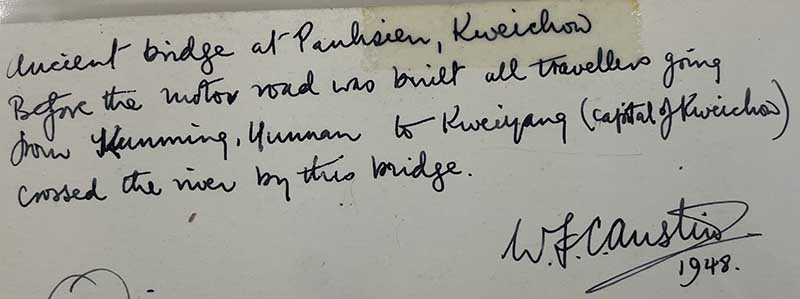 Ancient bridge at Panhsien, Kweichow
Before the motor road was built all travellers going
from Kunming, Yunnan to Kweiyang (capital of Kweichow)
crossed the river by this bridge.
W.F.C. Austin
1948.